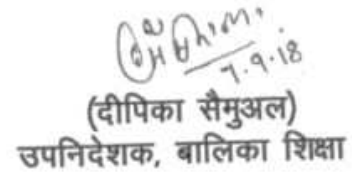 7.9.18
(दीपिका सैमुअल)
उपनिदेशक, बालिका शिक्षा